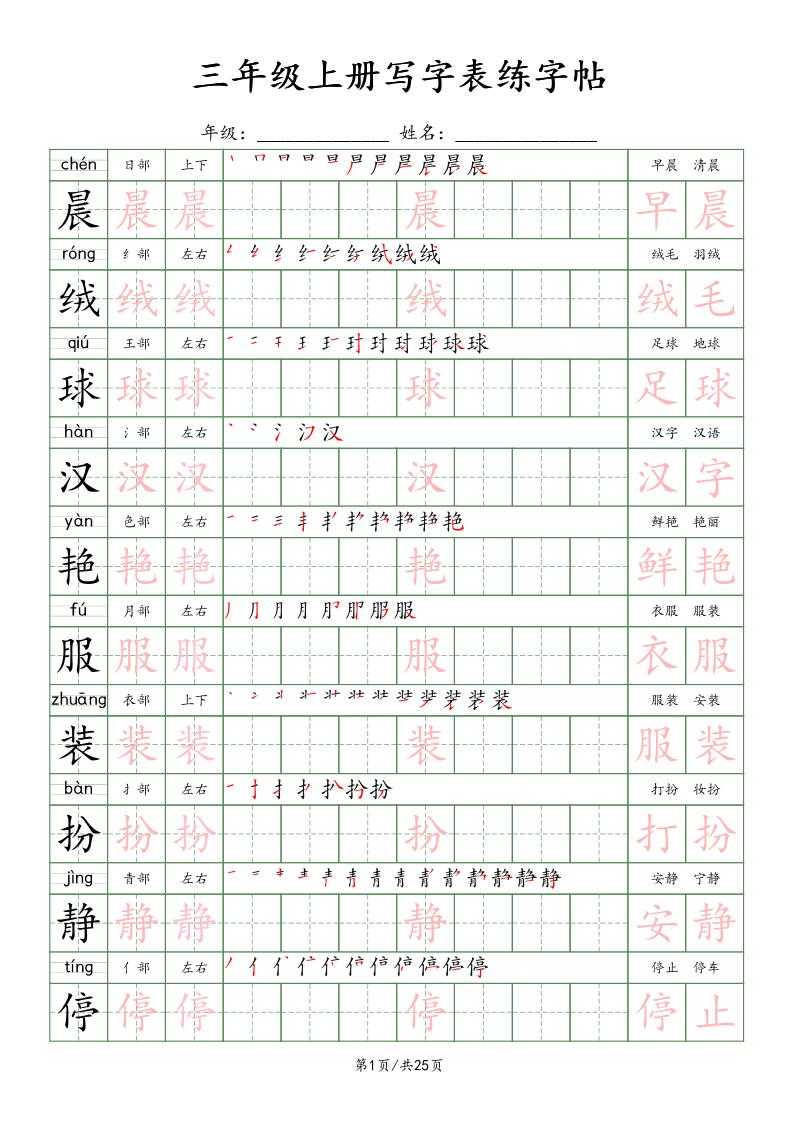 三年级上册写字表练字帖
年级：______________ 姓名：_______________
chén 日部 上下 早晨 清晨
晨 晨 晨 晨 早 晨
róng 纟部 左右 绒毛 羽绒
绒 绒 绒 绒 绒 毛
qiú 王部 左右 足球 地球
球 球 球 球 足 球
hàn 氵部 左右 汉字 汉语
汉 汉 汉 汉 汉 字
yàn 色部 左右 鲜艳 艳丽
艳 艳 艳 艳 鲜 艳
fú 月部 左右 衣服 服装
服 服 服 服 衣 服
zhuāng 衣部 上下 服装 安装
装 装 装 装 服 装
bàn 扌部 左右 打扮 妆扮
扮 扮 扮 扮 打 扮
jìng 青部 左右 安静 宁静
静 静 静 静 安 静
tíng 亻部 左右 停止 停车
停 停 停 停 停 止
第1页/共25页